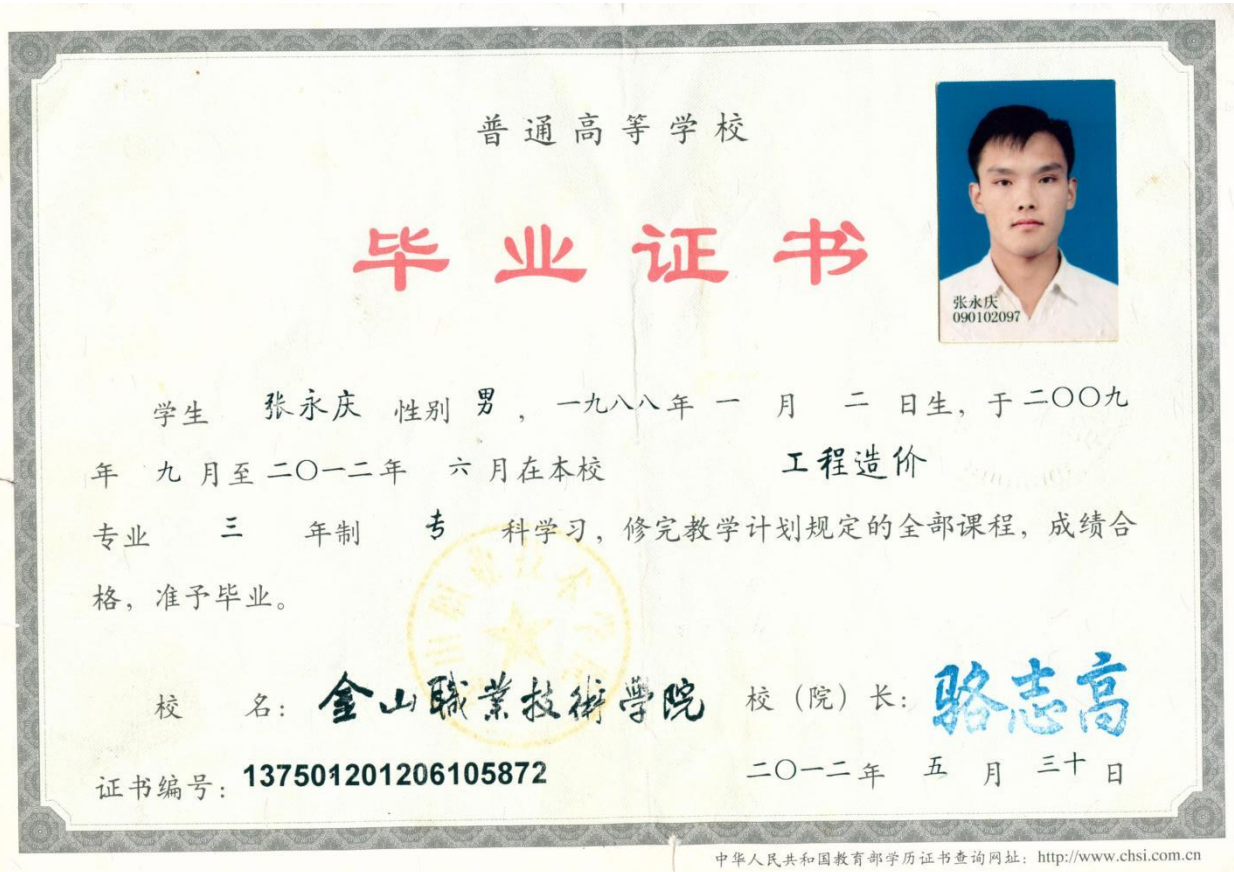 普通高等学校
毕业证书
张永庆
090102097
学生 张永庆 性别 男，一九八八年 一 月 二 日生，于二〇〇九
年 九 月至二〇一二年 六 月在本校 工程造价
专业 三 年制 专 科学习，修完教学计划规定的全部课程，成绩合
格，准予毕业。
校 名：金山職業技術學院 校（院）长：骆志高
证书编号：137501201206105872 二〇一二年 五 月 三十 日
中华人民共和国教育部学历证书查询网址：http://www.chsi.com.cn